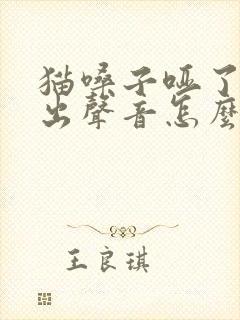 猫嗓子哑了
出聲音怎麼
王良琪